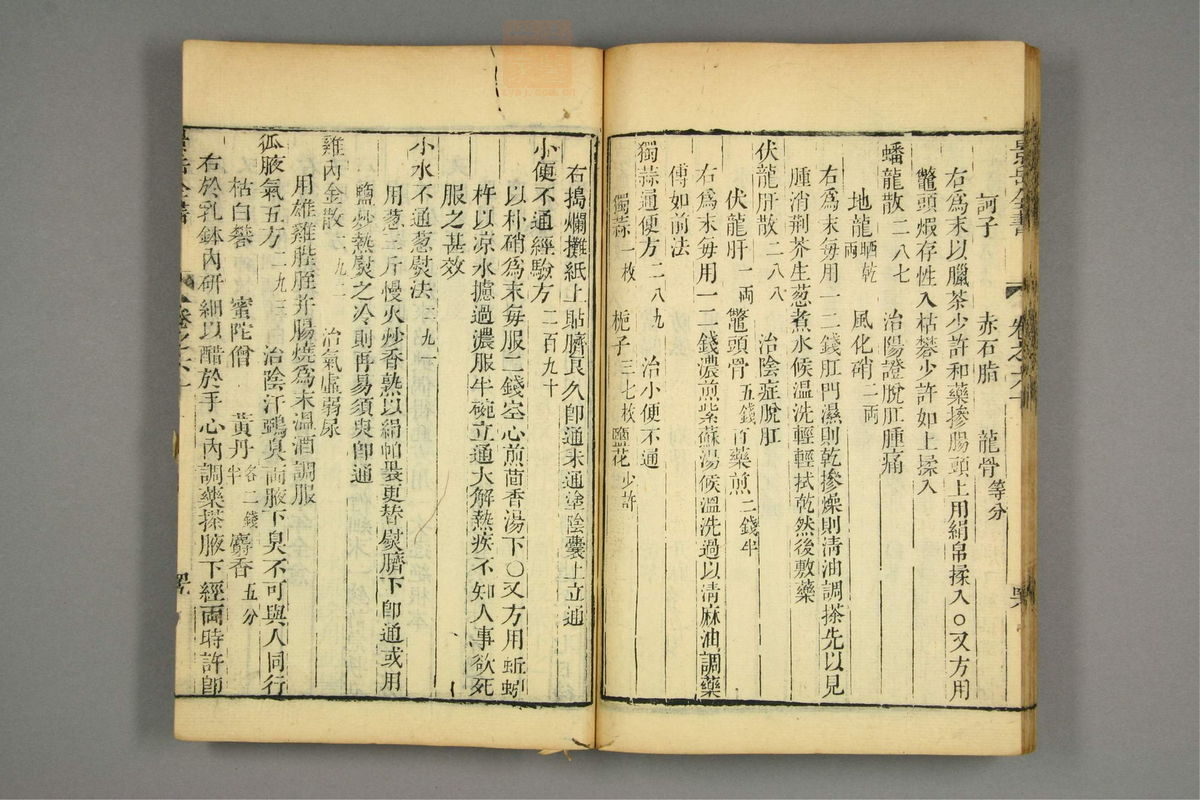 景岳全書 卷之六十
訶子 赤石脂 龍骨等分
右爲末以臘茶少許和藥摻腸頭上用絹帛揉入○又方用
鼈頭煆存性入枯礬少許如上揉入
蟠龍散二八七 治陽證脫肛腫痛
地龍晒乾一兩 風化硝二兩
右爲末每用一二錢肛門濕則乾摻燥則清油調搽先以見
腫消荆芥生葱煮水候溫洗輕輕拭乾然後敷藥
伏龍肝散二八八 治陰症脫肛
伏龍肝一兩 鼈頭骨五錢 百藥煎二錢半
右爲末每用一二錢濃煎紫蘇湯候溫洗過以清麻油調藥
傅如前法
獨蒜通便方二八九 治小便不通
獨蒜一枚 梔子三七枚 鹽花少許
右搗爛攤紙上貼臍良久卽通未通塗陰囊上立通
小便不通經驗方二百九十
以朴硝爲末每服二錢空心煎茴香湯下○又方用蚯蚓
杵以凉水攄過濃服半碗立通大解熱疾不知人事欲死
服之甚效
小水不通葱熨法二九一
用葱三斤慢火炒香熟以絹帕褁更替熨臍下卽通或用
鹽炒熱熨之冷則再易須臾卽通
雞內金散二九二 治氣虛弱尿
用雄雞䏶胵并腸燒爲末溫酒調服
狐腋氣五方二九三 治陰汗鵶臭兩腋下臭不可與人同行
枯白礬 蜜陀僧 黃丹各二錢半 麝香五分
右於乳鉢內研細以醋於手心內調藥搽腋下經兩時許卽
景岳全書 卷之六十